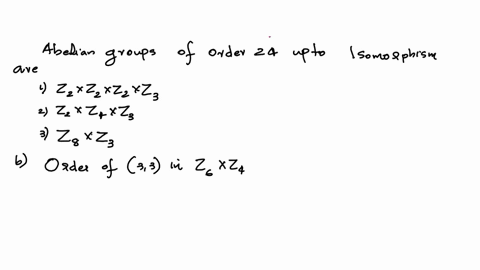 Abelian groups of order 24 upto Isomorphism
are
1) Z₂ × Z₂ × Z₂ × Z₃
2) Z₂ × Z₄ × Z₃
3) Z₈ × Z₃
b) Order of (3,3) in Z₆ × Z₄